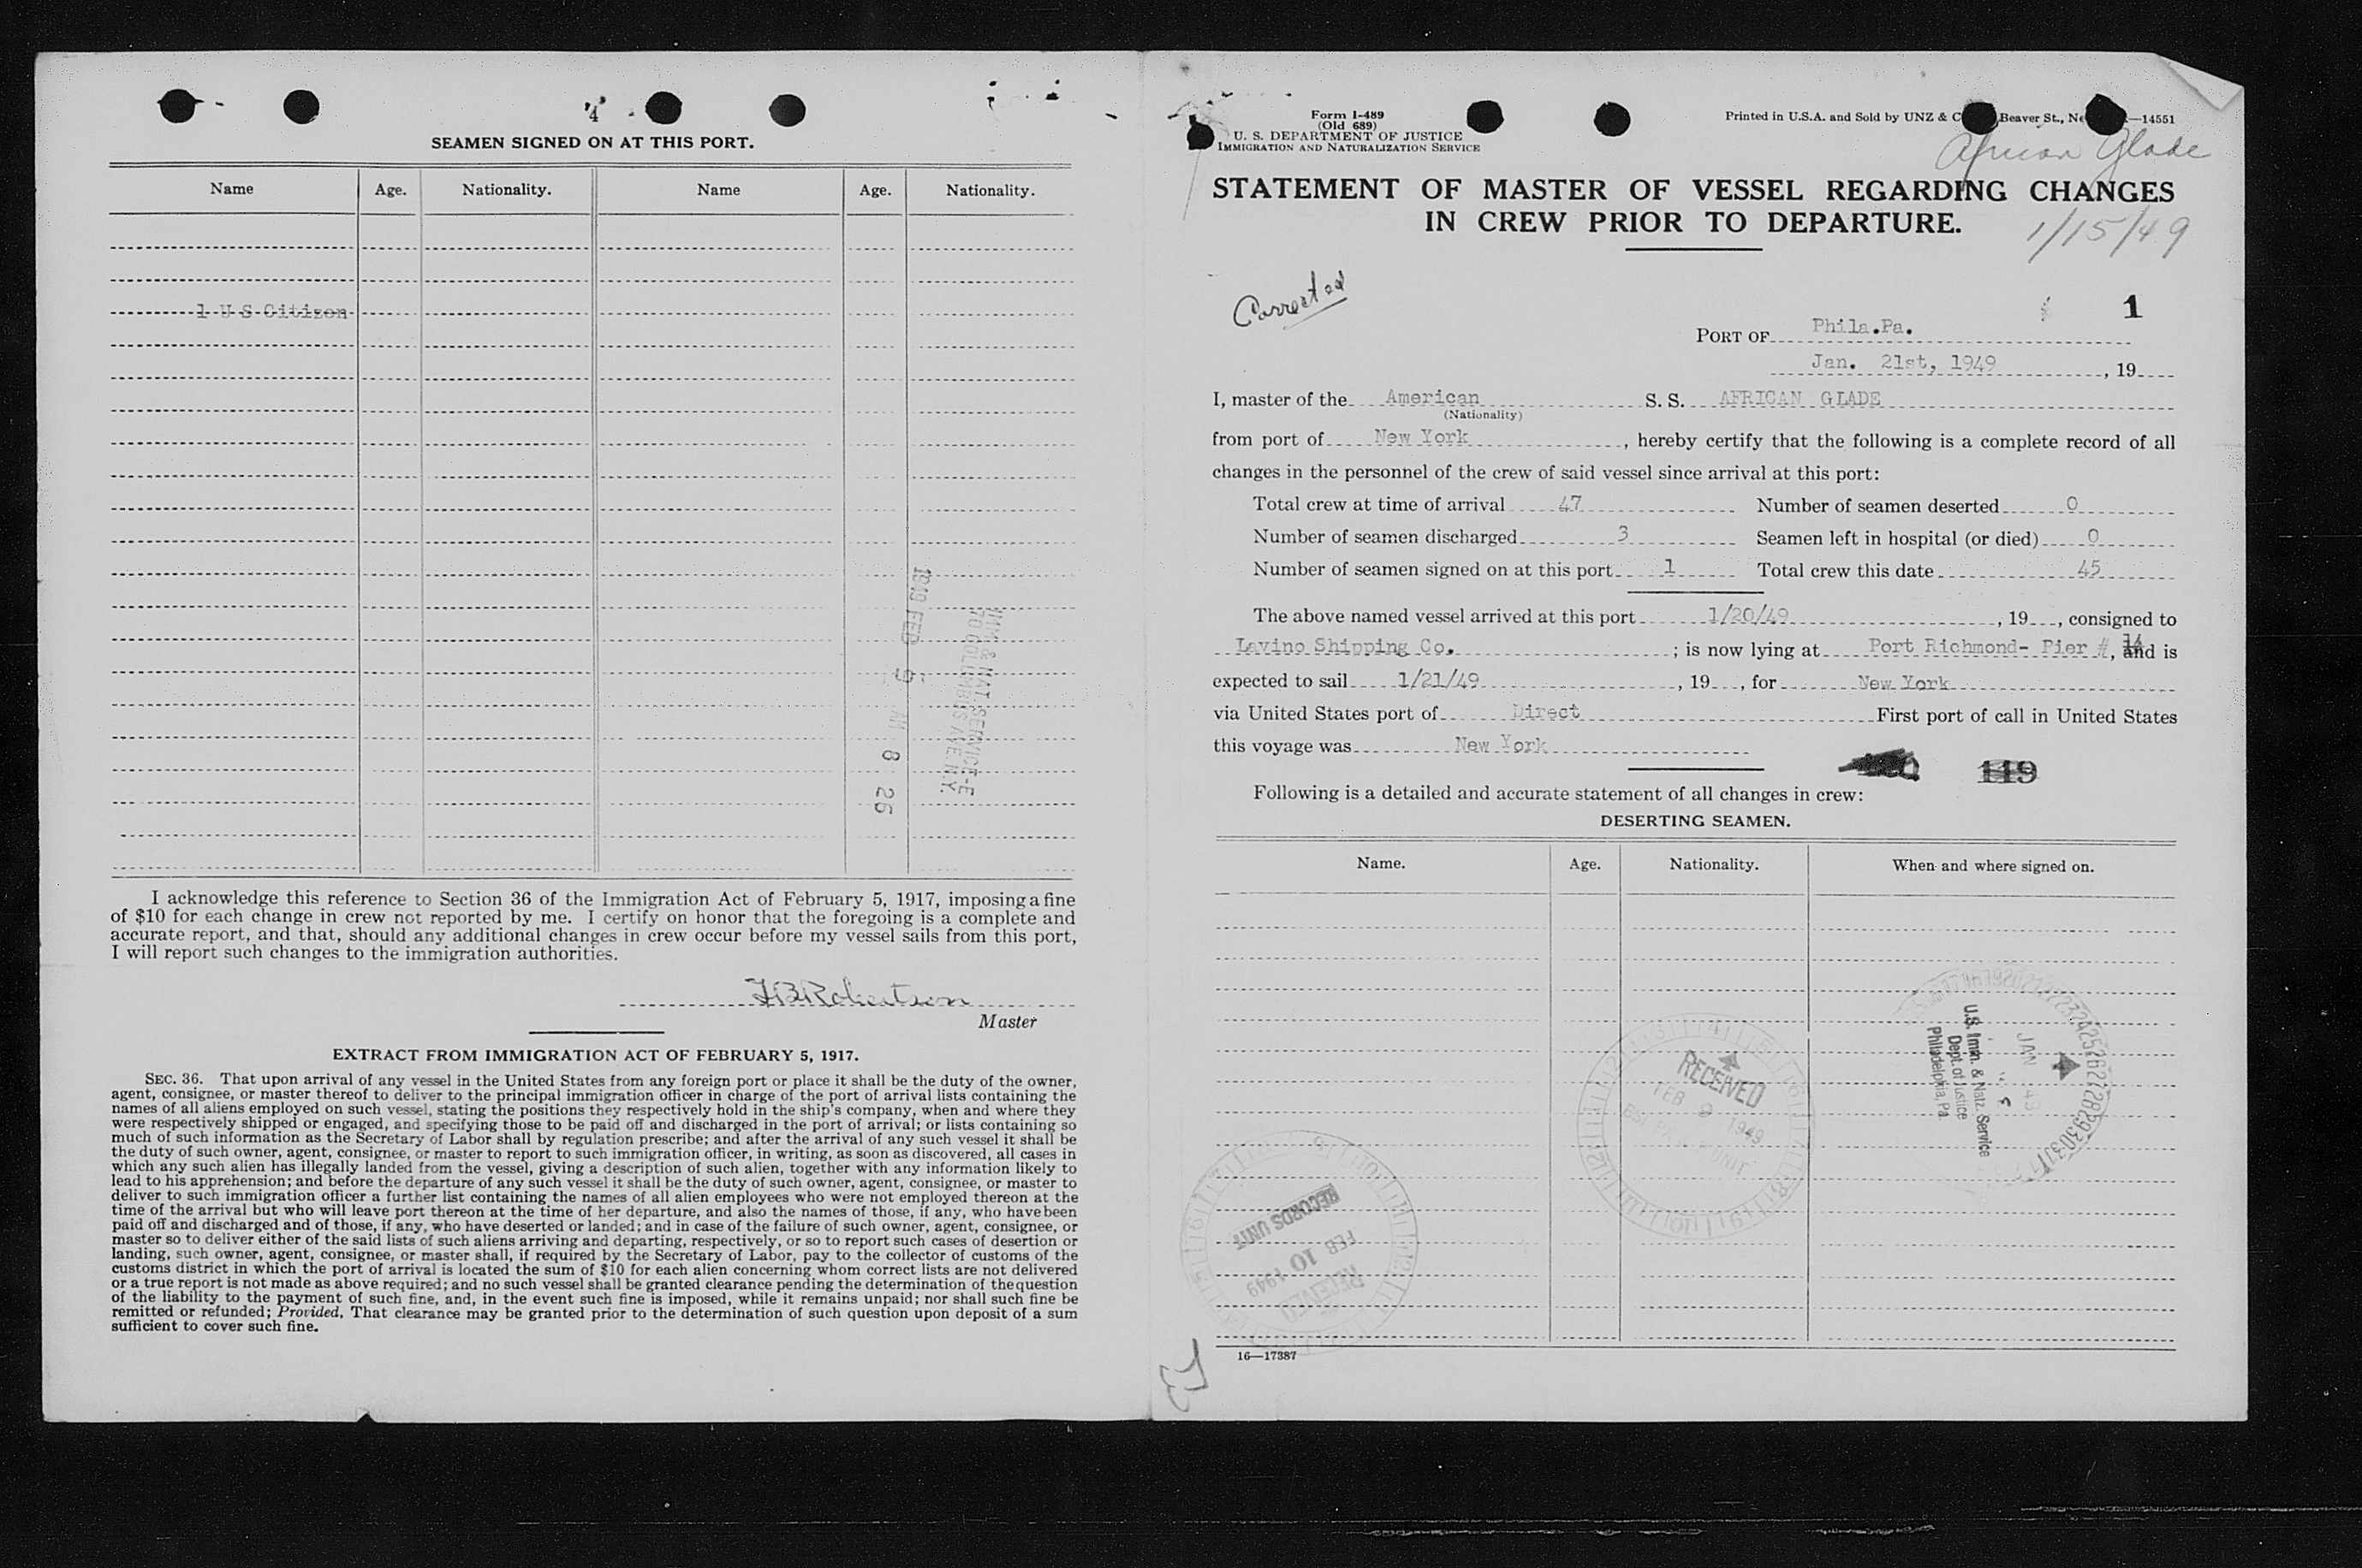 4
SEAMEN SIGNED ON AT THIS PORT.
Name Age. Nationality. Name Age. Nationality.
1 U S Citizen
IMM & NAT. SERVICE-E
70 COLUMBUS AVE N.Y.
1949 FEB 9 AM 8 26
I acknowledge this reference to Section 36 of the Immigration Act of February 5, 1917, imposing a fine
of $10 for each change in crew not reported by me. I certify on honor that the foregoing is a complete and
accurate report, and that, should any additional changes in crew occur before my vessel sails from this port,
I will report such changes to the immigration authorities.
Robertson
Master
EXTRACT FROM IMMIGRATION ACT OF FEBRUARY 5, 1917.
SEC. 36. That upon arrival of any vessel in the United States from any foreign port or place it shall be the duty of the owner,
agent, consignee, or master thereof to deliver to the principal immigration officer in charge of the port of arrival lists containing the
names of all aliens employed on such vessel, stating the positions they respectively hold in the ship's company, when and where they
were respectively shipped or engaged, and specifying those to be paid off and discharged in the port of arrival; or lists containing so
much of such information as the Secretary of Labor shall by regulation prescribe; and after the arrival of any such vessel it shall be
the duty of such owner, agent, consignee, or master to report to such immigration officer, in writing, as soon as discovered, all cases in
which any such alien has illegally landed from the vessel, giving a description of such alien, together with any information likely to
lead to his apprehension; and before the departure of any such vessel it shall be the duty of such owner, agent, consignee, or master to
deliver to such immigration officer a further list containing the names of all alien employees who were not employed thereon at the
time of the arrival but who will leave port thereon at the time of her departure, and also the names of those, if any, who have been
paid off and discharged and of those, if any, who have deserted or landed; and in case of the failure of such owner, agent, consignee, or
master so to deliver either of the said lists of such aliens arriving and departing, respectively, or so to report such cases of desertion or
landing, such owner, agent, consignee, or master shall, if required by the Secretary of Labor, pay to the collector of customs of the
customs district in which the port of arrival is located the sum of $10 for each alien concerning whom correct lists are not delivered
or a true report is not made as above required; and no such vessel shall be granted clearance pending the determination of the question
of the liability to the payment of such fine, and, in the event such fine is imposed, while it remains unpaid; nor shall such fine be
remitted or refunded; Provided, That clearance may be granted prior to the determination of such question upon deposit of a sum
sufficient to cover such fine.
Form I-489
(Old 689)
U. S. DEPARTMENT OF JUSTICE
IMMIGRATION AND NATURALIZATION SERVICE
Printed in U.S.A. and Sold by UNZ & C Beaver St., Ne —14551
African Glade
STATEMENT OF MASTER OF VESSEL REGARDING CHANGES
IN CREW PRIOR TO DEPARTURE.
1/15/49
Corrected
1
PORT OF Phila.Pa.
Jan. 21st, 1949, 19
I, master of the American S. S. AFRICAN GLADE
(Nationality)
from port of New York, hereby certify that the following is a complete record of all
changes in the personnel of the crew of said vessel since arrival at this port:
Total crew at time of arrival 47 Number of seamen deserted 0
Number of seamen discharged 3 Seamen left in hospital (or died) 0
Number of seamen signed on at this port 1 Total crew this date 45
The above named vessel arrived at this port 1/20/49, 19 , consigned to
Lavino Shipping Co. ; is now lying at Port Richmond- Pier # 14, and is
expected to sail 1/21/49, 19 , for New York
via United States port of Direct First port of call in United States
this voyage was New York
119
Following is a detailed and accurate statement of all changes in crew:
DESERTING SEAMEN.
Name. Age. Nationality. When and where signed on.
U.S. Imm. & Natz. Service
Dept. of Justice
Philadelphia, Pa.
JAN
RECEIVED
FEB 9 1949
RECORDS UNIT
FEB 10 1949
RECEIVED
16—17387